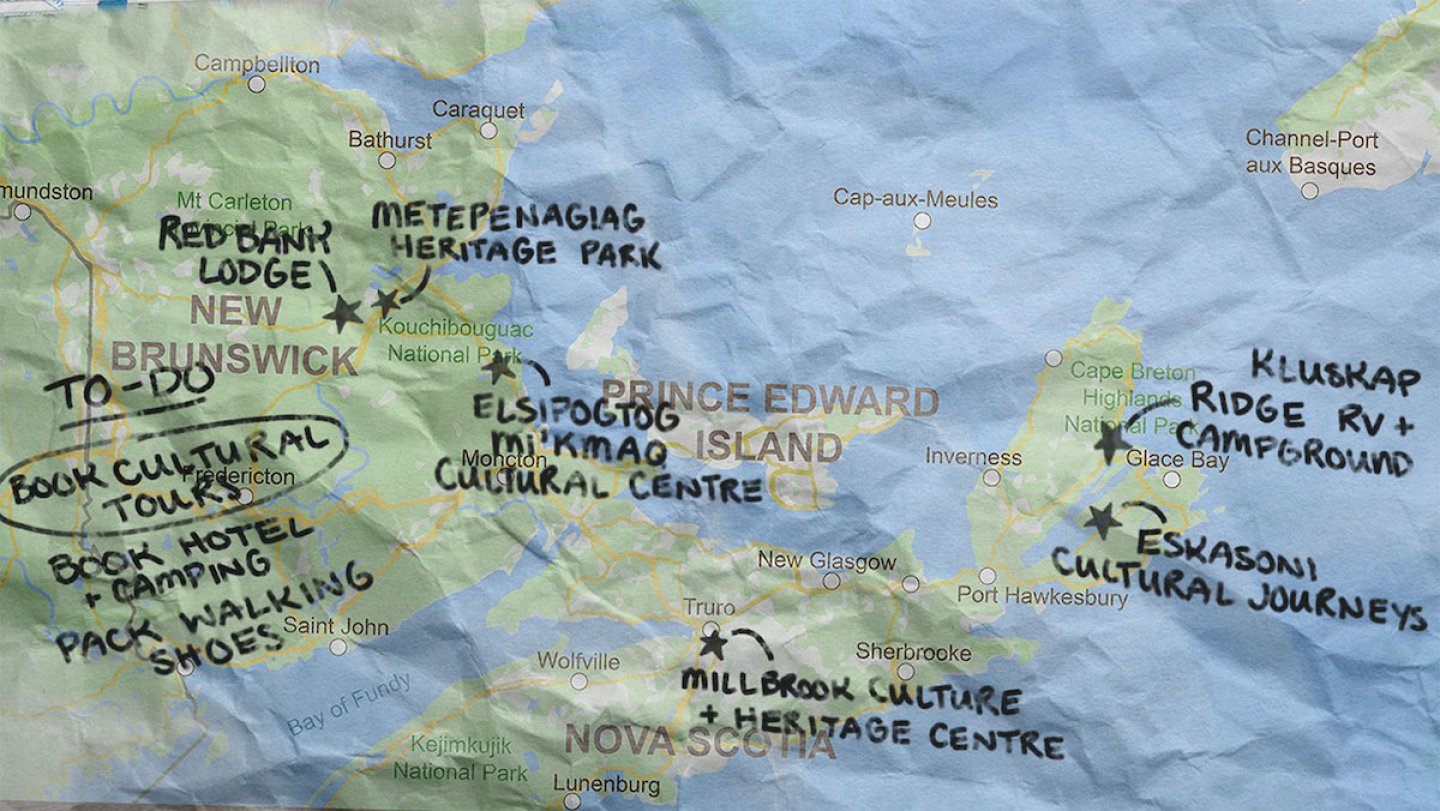 Campbellton
Caraquet
Bathurst
Channel-Port
aux Basques
mundston
Mt Carleton
Provincial Park
Cap-aux-Meules
RED BANK
LODGE
METEPENAGIAG
HERITAGE PARK
NEW
BRUNSWICK
Kouchibouguac
National Park
TO-DO
BOOK CULTURAL
TOURS
Fredericton
BOOK HOTEL
+ CAMPING
PACK WALKING
SHOES
ELSIPOGTOG
MI'KMAQ
CULTURAL CENTRE
Moncton
PRINCE EDWARD
ISLAND
Cape Breton
Highlands
National Park
KLUSKAP
RIDGE RV +
CAMPGROUND
Inverness
Glace Bay
ESKASONI
CULTURAL JOURNEYS
New Glasgow
Port Hawkesbury
Truro
Saint John
Wolfville
Sherbrooke
MILLBROOK CULTURE
+ HERITAGE CENTRE
Bay of Fundy
NOVA SCOTIA
Kejimkujik
National Park
Lunenburg